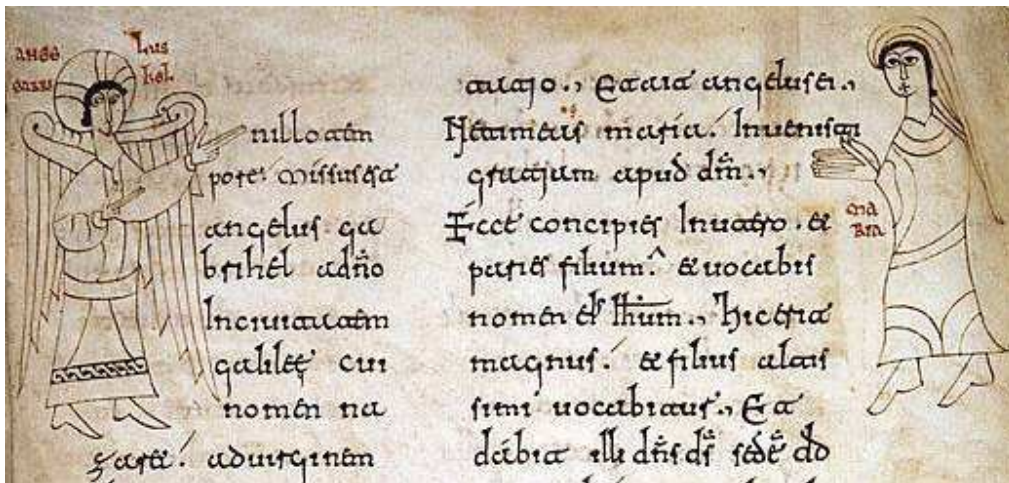 ANGE LUS
GABRI hEL
nillo tem
pore. Missus est
angelus ga
brihel a dño
In civitatem
galileę cui
nomen na
zaret. ad virginem
Et ait angelus ei.,
Ne timeas maria. Invenisti
gratiam apud dm̃.,
Ecce concipies In utero. et
paries filium. et vocabis
nomen ei' Ihum., hic erit
magnus. et filius altis
simi vocabitur., Et
dabit illi dñs ds̃ sedẽ dd
MA
RIA